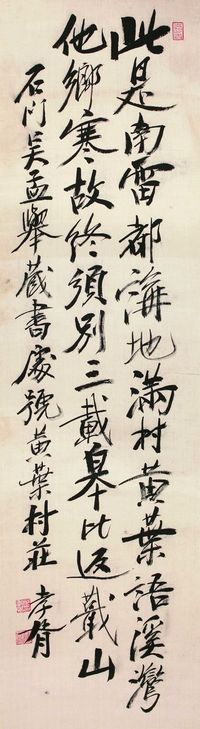 此是南雷都講地滿村黃葉語溪灣
他鄉寒故終須別三載皋比返蕺山
石門吳孟舉藏書處號黃葉村莊 孝胥